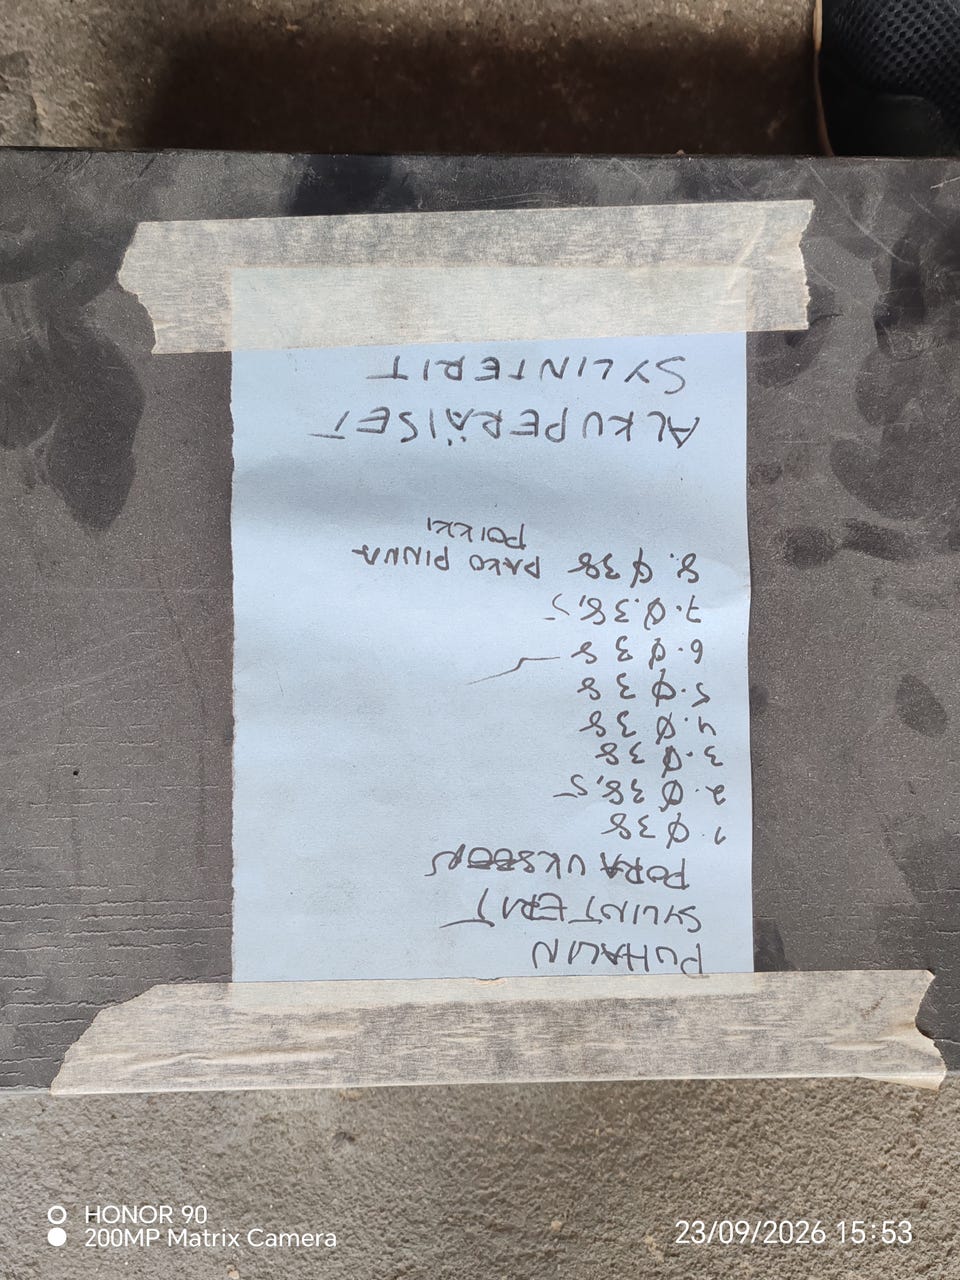 PUHALIN
SYLINTERIT
1. Ø38
2. Ø38,5
3. Ø38
4. Ø38
5. Ø38
6. Ø38
7. Ø38,5
8. Ø38 PAKO PINNA
POIKKI
ALKUPERÄISET
SYLINTERIT
HONOR 90
200MP Matrix Camera
23/09/2026 15:53